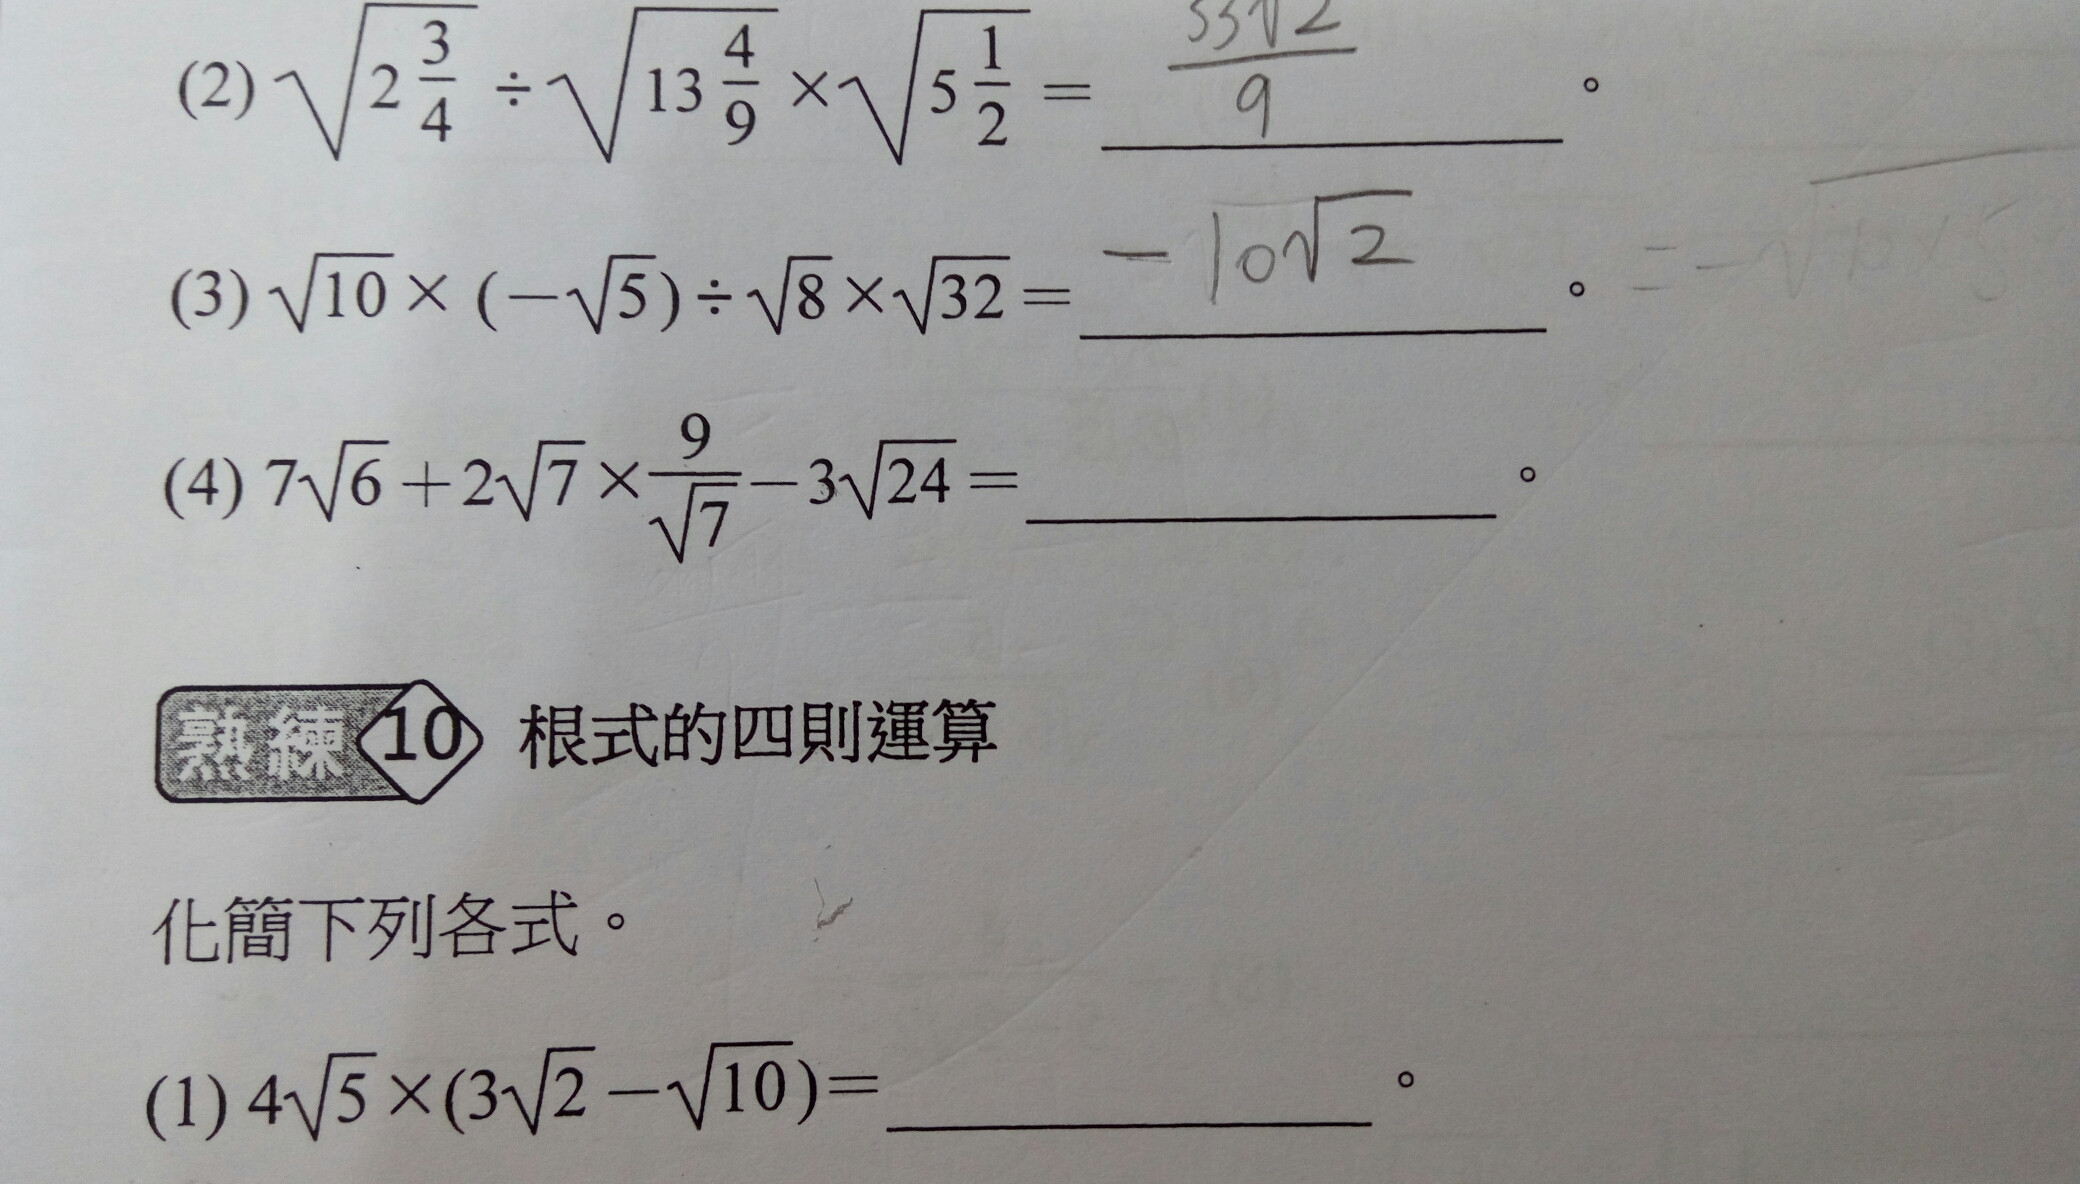 (2) √(2 3/4) ÷ √(13 4/9) × √(5 1/2) = 33√2/9 。
(3) √10 × (−√5) ÷ √8 × √32 = −10√2 。
(4) 7√6 + 2√7 × 9/√7 − 3√24 = 。
熟練 10 根式的四則運算
化簡下列各式。
(1) 4√5 × (3√2 − √10) = 。